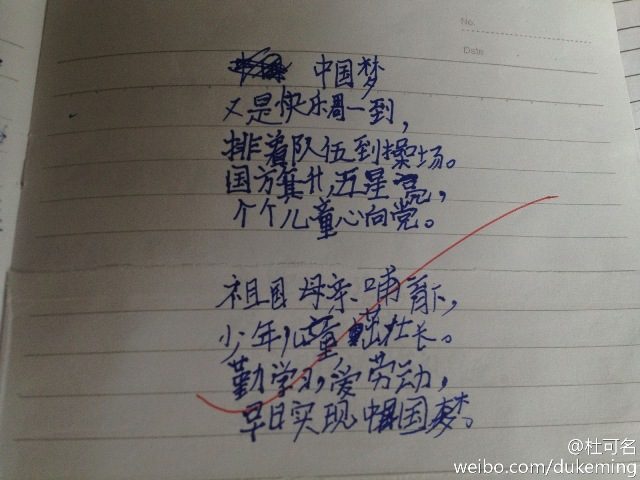 No.
Date
中国梦
又是快乐周一到,
排着队伍到操场。
国方箕升,五星亮,
个个儿童心向党。
祖国母亲哺育下,
少年儿童茁壮长。
勤学习,爱劳动,
早日实现中国梦。
@杜可名
weibo.com/dukeming